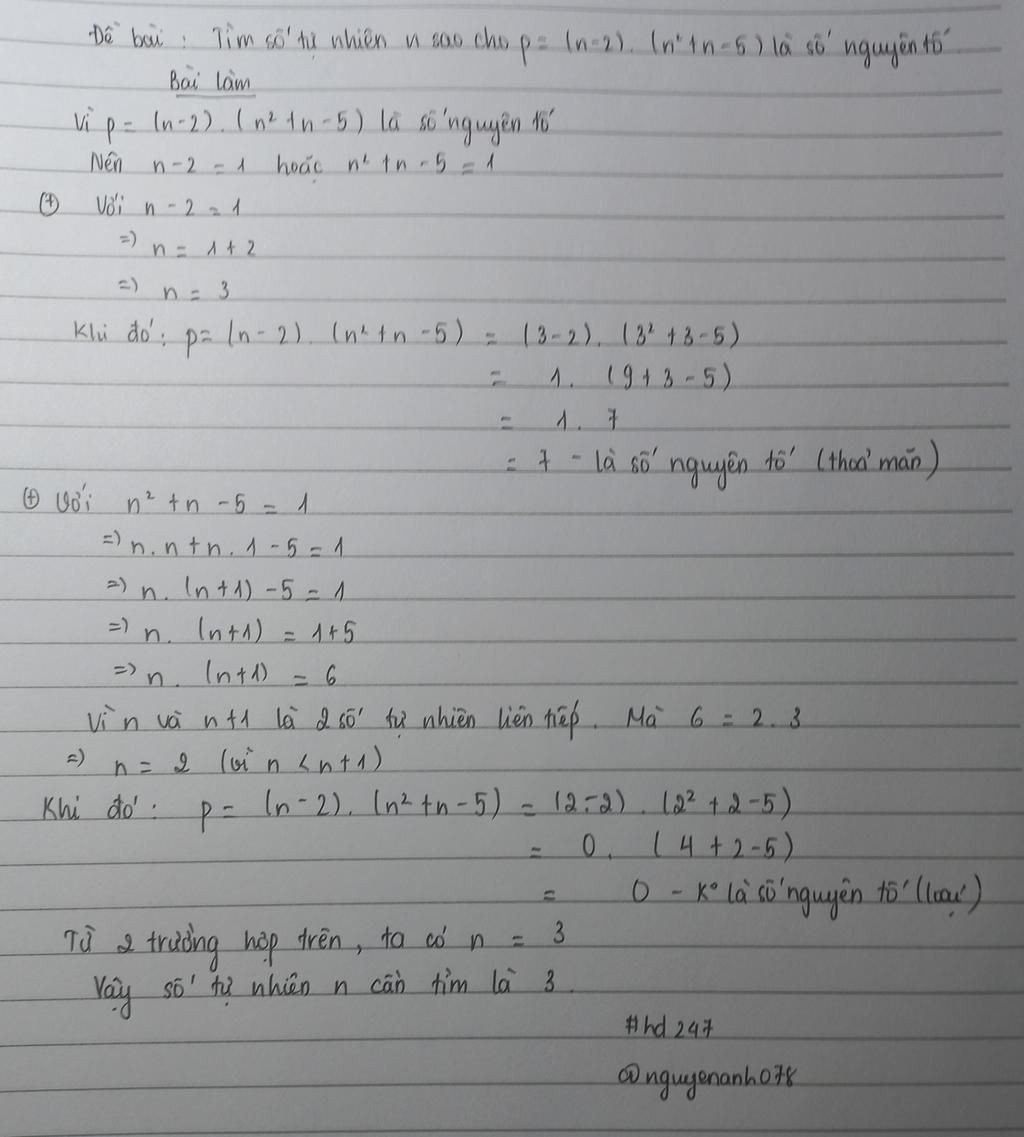 Đề bài : Tìm số tự nhiên n sao cho p = (n-2) . (n² + n - 5) là số nguyên tố
Bài làm
Vì p = (n-2) . (n² + n - 5) là số nguyên tố
Nên n - 2 = 1 hoặc n² + n - 5 = 1
(+) Với n - 2 = 1
=> n = 1 + 2
=> n = 3
Khi đó : p = (n - 2) . (n² + n - 5) = (3 - 2) . (3² + 3 - 5)
= 1 . (9 + 3 - 5)
= 1 . 7
= 7 - là số nguyên tố (thoả mãn)
(+) Với n² + n - 5 = 1
=> n . n + n . 1 - 5 = 1
=> n . (n + 1) - 5 = 1
=> n . (n+1) = 1 + 5
=> n . (n+1) = 6
Vì n và n+1 là 2 số tự nhiên liên tiếp . Mà 6 = 2 . 3
=> n = 2 (vì n < n+1)
Khi đó : p = (n - 2) . (n² + n - 5) = (2 - 2) . (2² + 2 - 5)
= 0 . (4 + 2 - 5)
= 0 - K° là số nguyên tố (loại)
Từ 2 trường hợp trên, ta có n = 3
Vậy số tự nhiên n cần tìm là 3 .
#hd247
@nguyenanh078